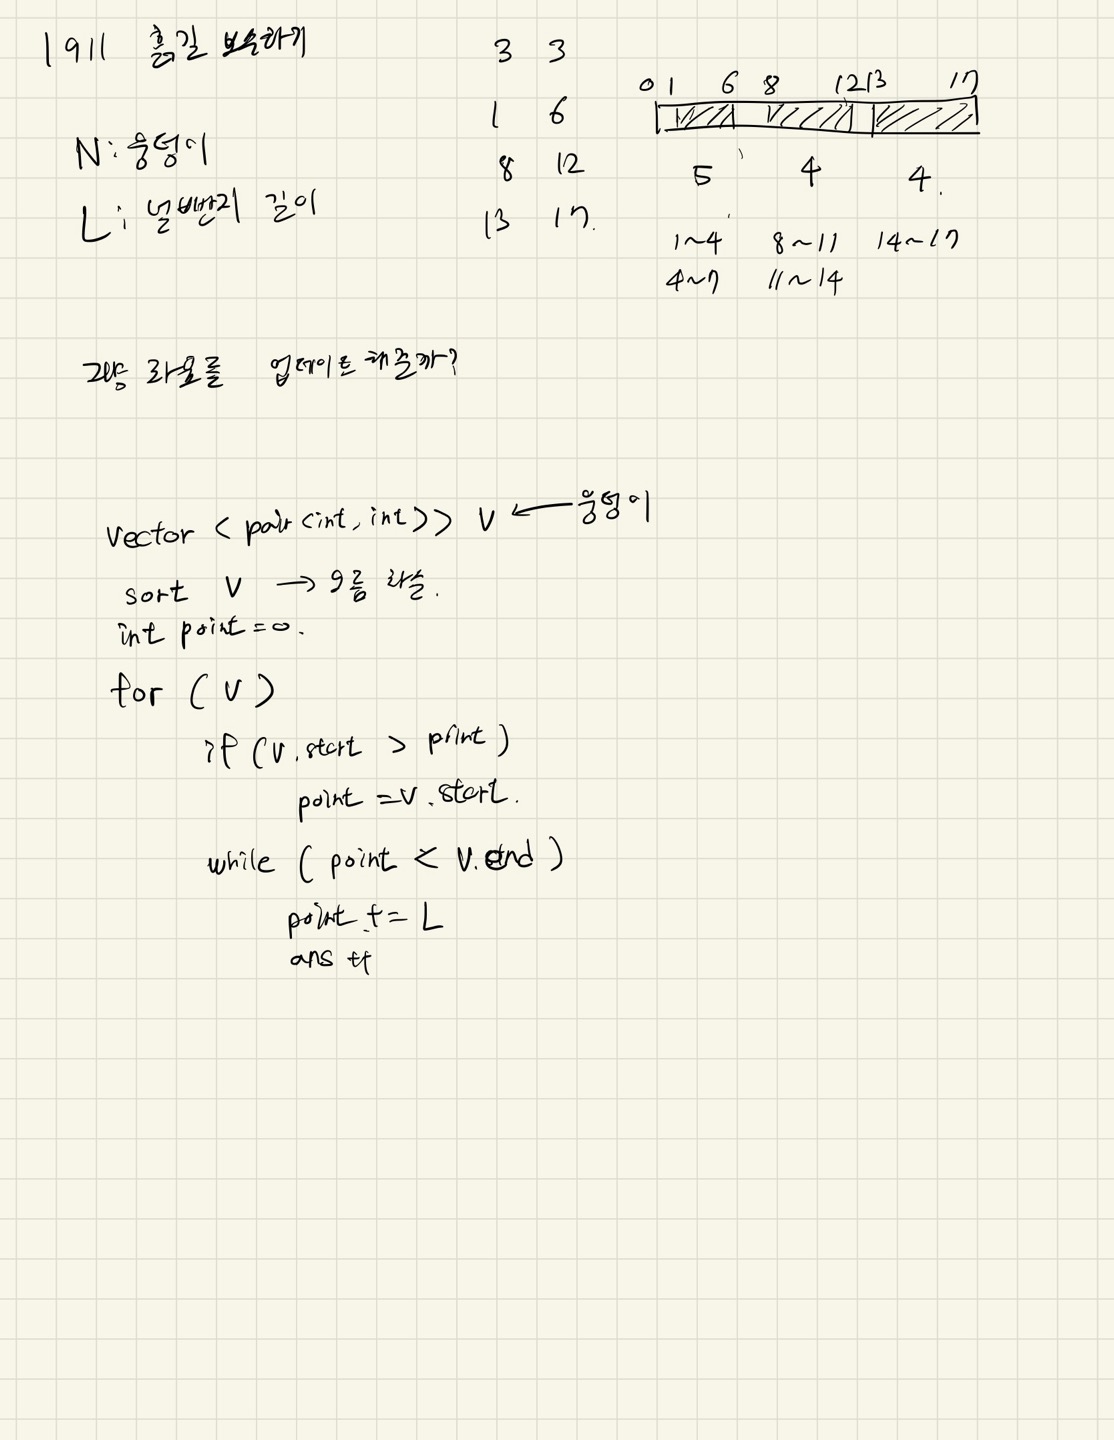 1911 흙길 보수하기
3 3
1 6
8 12
13 17.
N: 웅덩이
L: 널빤지 길이
0 1 6 8 12 13 17
5 4 4.
1~4 8~11 14~17
4~7 11~14
그냥 좌표를 업데이트 해줄까?
vector < pair <int, int>> v ← 웅덩이
sort v → 오름 차순.
int point = 0.
for ( v )
if (v.start > point)
point = v.start.
while ( point < v.end )
point += L
ans ++